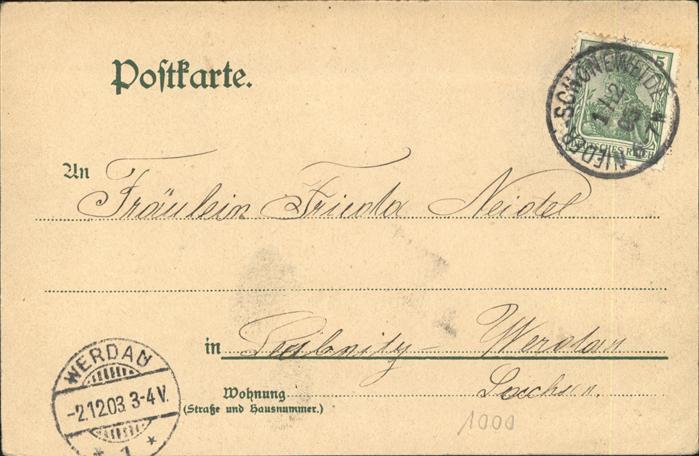 Postkarte.
5
NIEDER-SCHÖNEWEIDE
1.12
03
6-7N
An
Fräulein Frieda Neidel
in Leubnitz-Werdau
Sachsen.
Wohnung
(Straße und Hausnummer.)
WERDAU
-2.12.03 3-4V.
* 1 *
1000